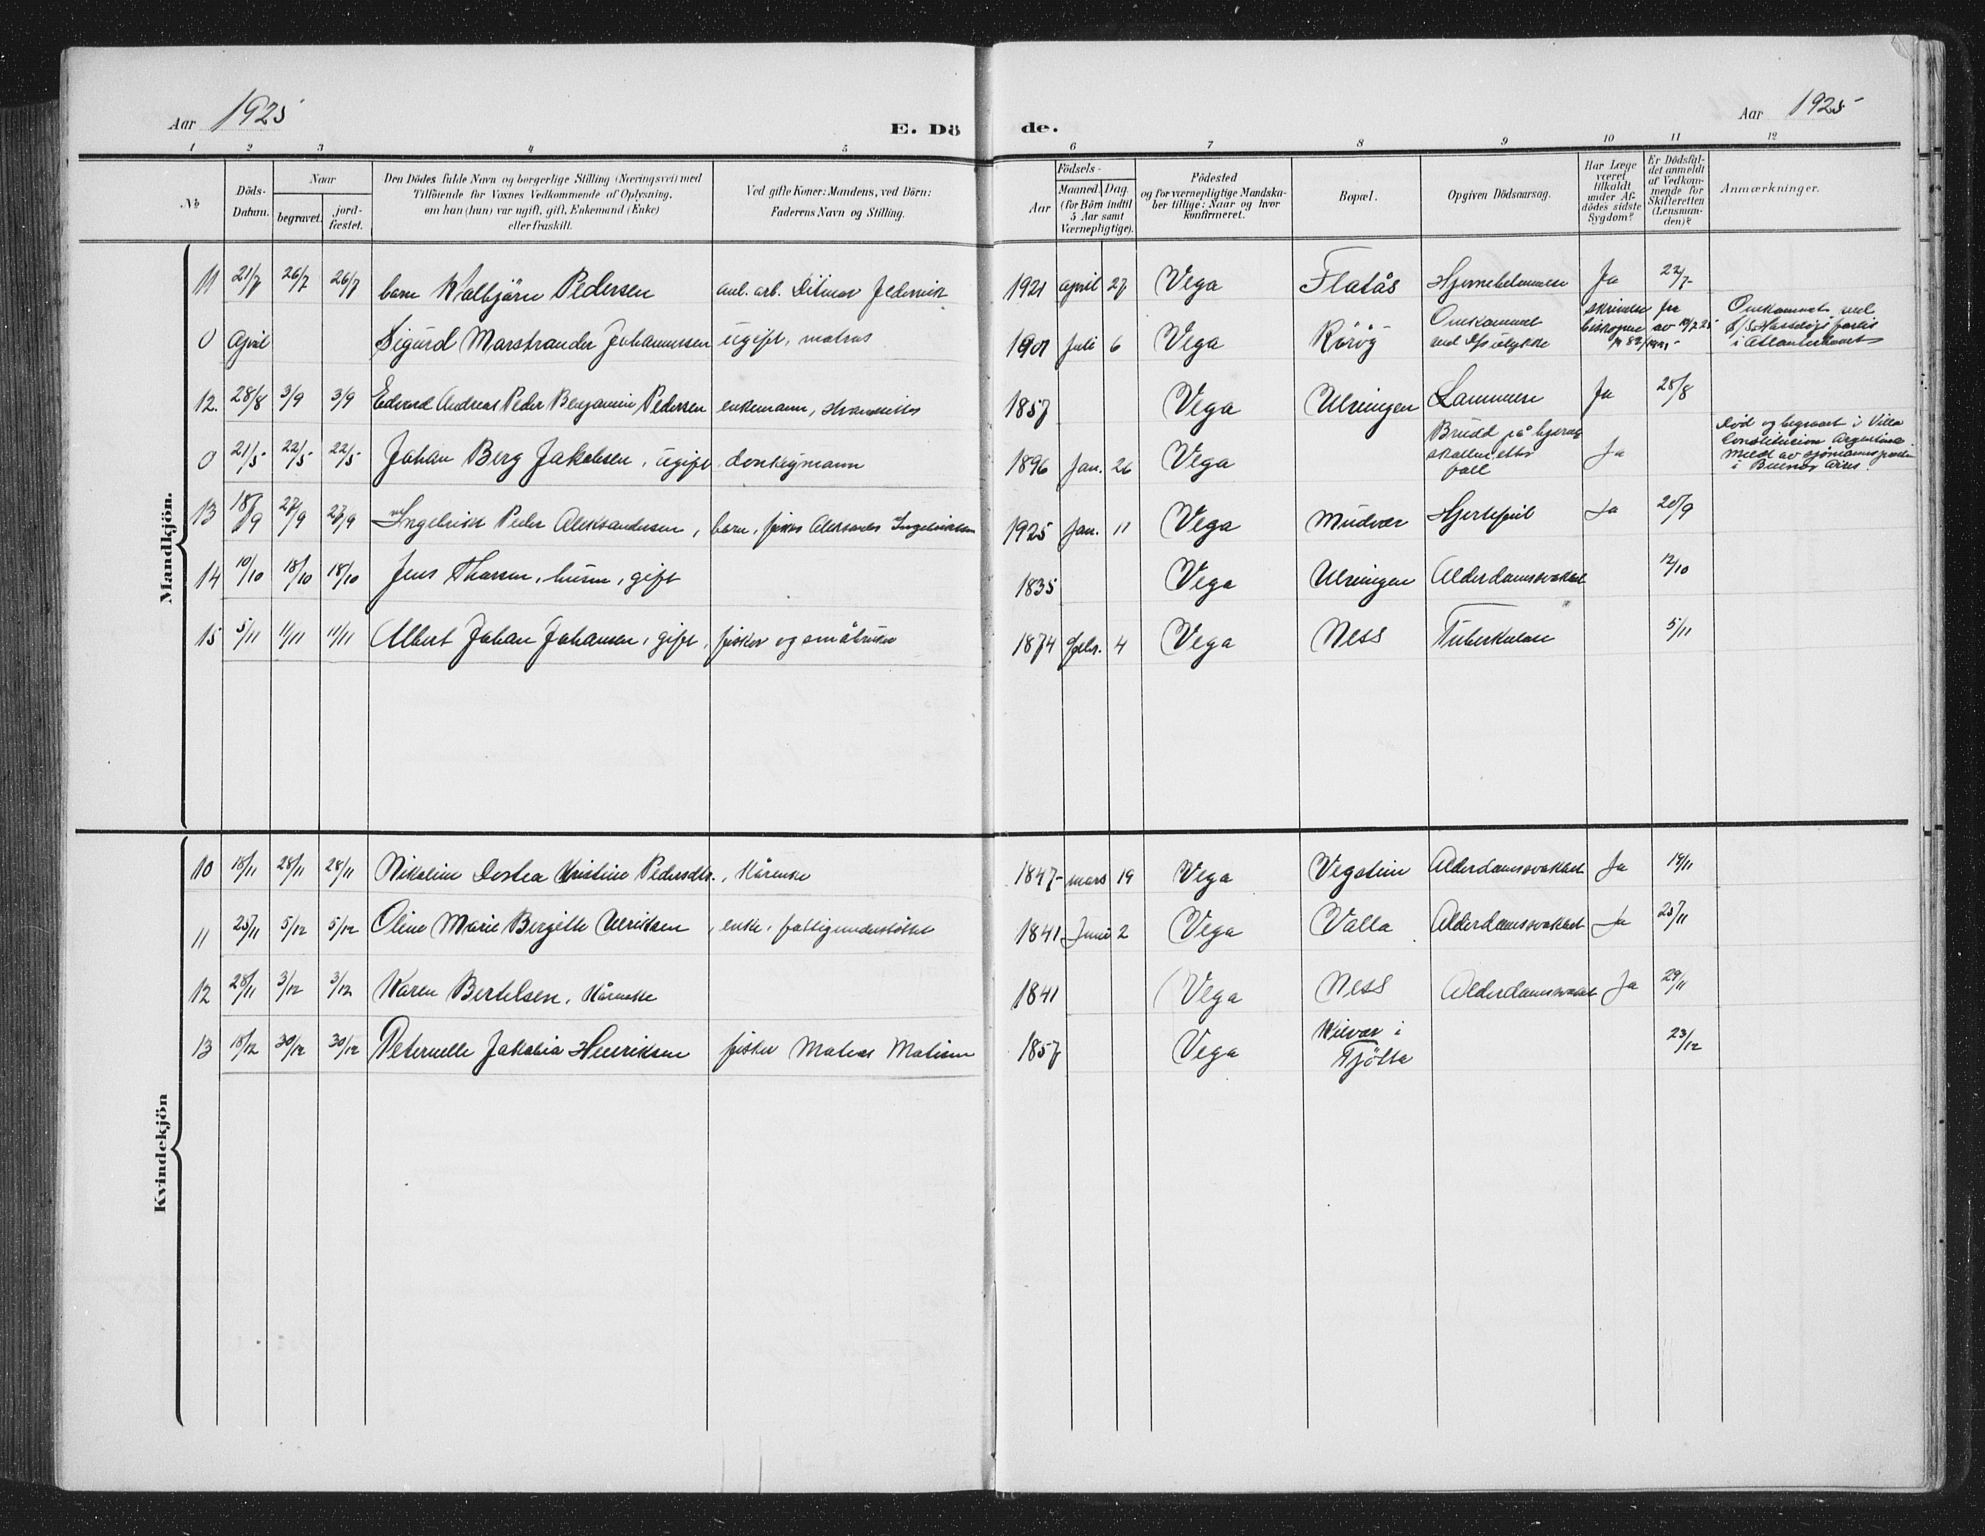 Aar 1925
E. Dö de.
Aar 1925
1 2 3 4 5 6 7 8 9 10 11 12
No
Döds-Datum.
Naar
begravet.
jord-fæstet.
Den Dödes fulde Navn og borgerlige Stilling (Næringsvei) med
Tilföiende for Voxnes Vedkommende af Oplysning,
om han (hun) var ugift, gift, Enkemand (Enke)
eller fraskilt.
Ved gifte Koner: Mandens, ved Börn:
Faderens Navn og Stilling.
Födsels-
Aar
Maaned, Dag
(for Börn indtil
5 Aar samt
Værnepligtige).
Födested
og for værnepligtige Mandska-
ber tillige: Naar og hvor
konfirmeret.
Bopæl.
Opgiven Dödsaarsag.
Har Læge
været
tilkaldt
under Af-
dödes sidste
Sygdom?
Er Dödsfal-
det anmeldt
af Vedkom-
mende for
Skifteretten
(Lensman-
den)?
Anmærkninger.
Mandkjön.
11 21/7 26/7 26/7 barn Pedersen 1921 april 27 Vega Flatås Ja 22/7
0 April Sigurd Marstrander Johannessen ugift, matros 1901 Juli 6 Vega Rörög Omkommet ved i Atlanterhavet
12. 28/8 3/9 3/9 Edvard Andreas Peder Benjamin Pedersen enkemann, 1857 Vega Ulvingen Ja 28/8
0 21/5 22/5 22/5 Johan Berg Jakobsen, ugift donkeymann 1896 Jan. 26 Vega Brudd på skallen etter fall Ja Död og begravet i Villa Constitucion Argentina i Buenos Aires.
13 18/9 27/9 27/9 Peder Aleksandersen, barn, 1925 Jan. 11 Vega Mudvær Hjertefeil Ja 20/9
14 10/10 18/10 18/10 Jens gift 1835 Vega Ulvingen Alderdomssvakhet 12/10
15 5/11 11/11 11/11 Albert Johan Johansen, gift, fisker og småbruker 1874 Febr. 4 Vega Ness Tuberkulose 5/11
Kvindekjön
10 18/11 28/11 28/11 Nikoline Dortea Kristine Pedersdtr., Kårenke 1847 mars 19 Vega Vegstein Alderdomssvakhet Ja 19/11
11 25/11 5/12 5/12 Oline Marie Bergitte Ulriksen, enke, fattigunderstöttet 1841 Juni 2 Vega Valla Alderdomssvakhet Ja 25/11
12 28/11 3/12 3/12 Karen Bertelsen, Kårenke 1841 Vega Ness Alderdomssvakhet Ja 29/11
13 18/12 30/12 30/12 Peternelle Jakobia Henriksen fisker 1857 Vega i Tjötta 23/12